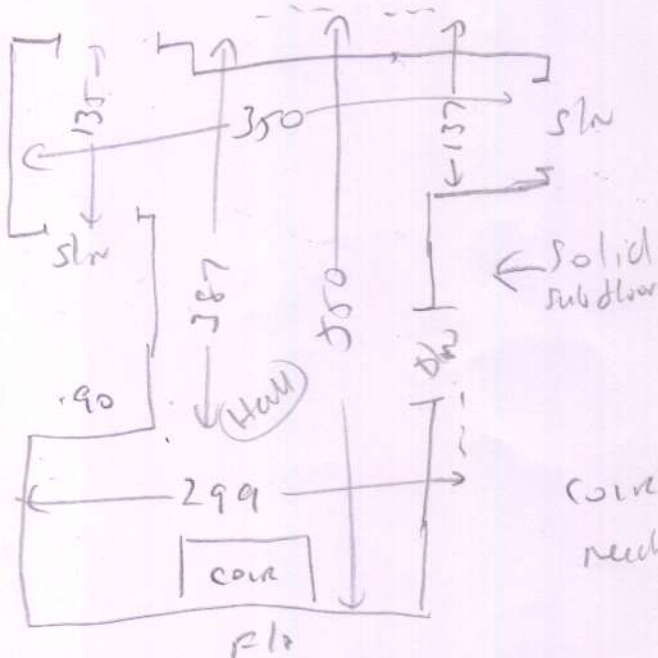 135
350
137
s/w
s/w
solid
subfloor
387
550
.90
Hall
299
COIR
COIR
need